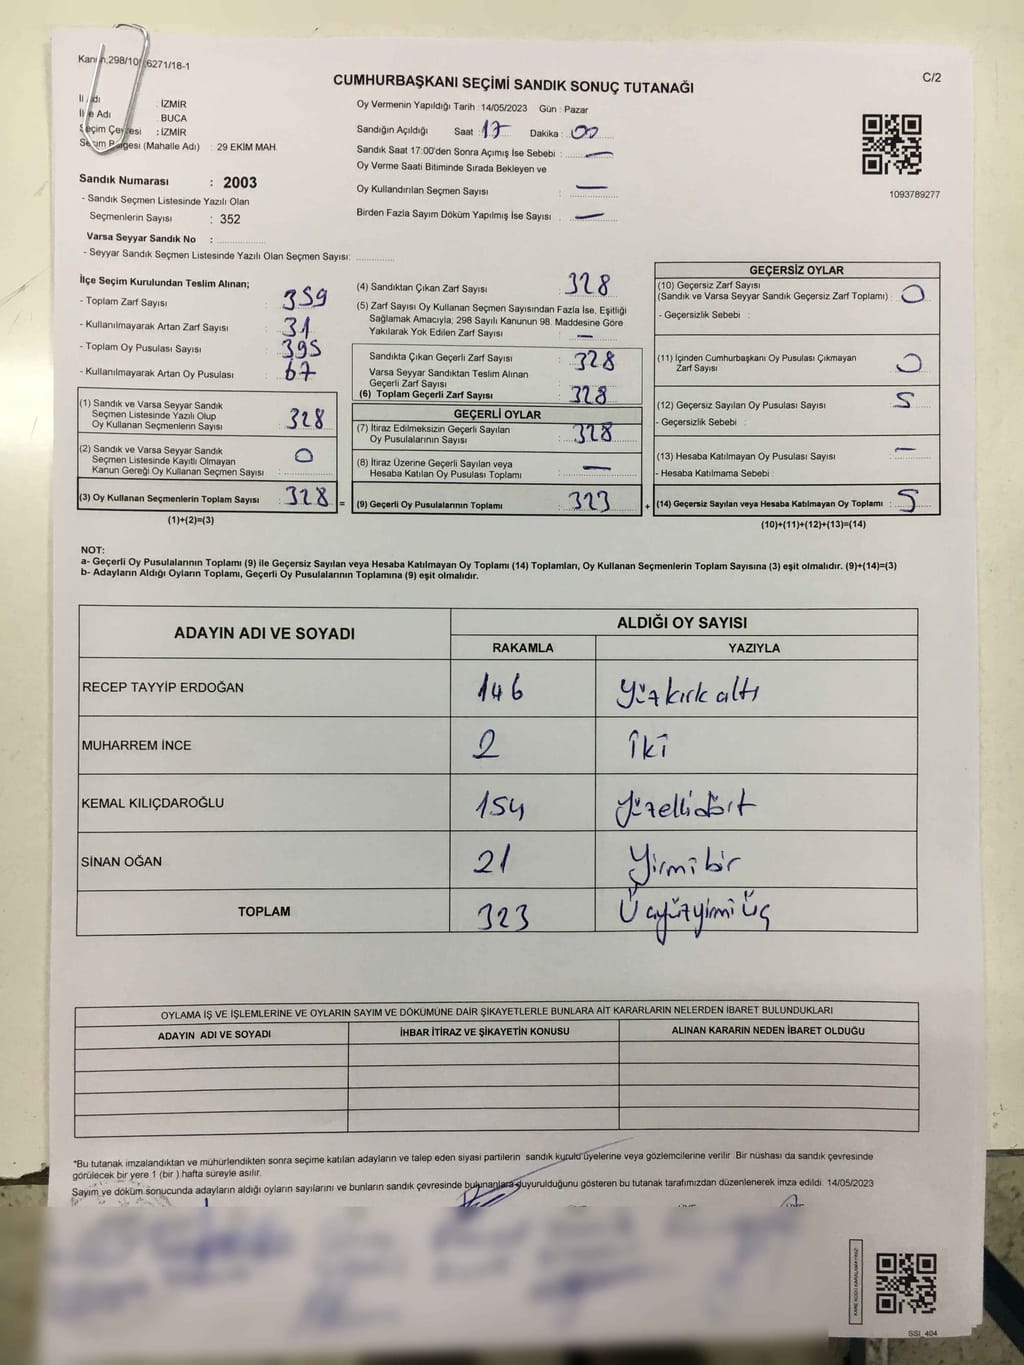 Kanun,298/10 ,6271/18-1
CUMHURBAŞKANI SEÇİMİ SANDIK SONUÇ TUTANAĞI
C/2
İl Adı : İZMİR
İlçe Adı : BUCA
Seçim Çevresi : İZMİR
Seçim Bölgesi (Mahalle Adı) : 29 EKİM MAH.
Oy Vermenin Yapıldığı Tarih : 14/05/2023 Gün : Pazar
Sandığın Açıldığı Saat : 17 Dakika : 00
Sandık Saat 17:00'den Sonra Açılmış İse Sebebi : —
Oy Verme Saati Bitiminde Sırada Bekleyen ve
Oy Kullandırılan Seçmen Sayısı : —
Birden Fazla Sayım Döküm Yapılmış İse Sayısı : —
1093789277
Sandık Numarası : 2003
- Sandık Seçmen Listesinde Yazılı Olan
Seçmenlerin Sayısı : 352
Varsa Seyyar Sandık No :
- Seyyar Sandık Seçmen Listesinde Yazılı Olan Seçmen Sayısı:
İlçe Seçim Kurulundan Teslim Alınan;
- Toplam Zarf Sayısı : 359
- Kullanılmayarak Artan Zarf Sayısı : 31
- Toplam Oy Pusulası Sayısı : 395
- Kullanılmayarak Artan Oy Pusulası : 67
(1) Sandık ve Varsa Seyyar Sandık
Seçmen Listesinde Yazılı Olup
Oy Kullanan Seçmenlerin Sayısı : 328
(2) Sandık ve Varsa Seyyar Sandık
Seçmen Listesinde Kayıtlı Olmayan
Kanun Gereği Oy Kullanan Seçmen Sayısı : 0
(3) Oy Kullanan Seçmenlerin Toplam Sayısı : 328 =
(1)+(2)=(3)
(4) Sandıktan Çıkan Zarf Sayısı : 328
(5) Zarf Sayısı Oy Kullanan Seçmen Sayısından Fazla İse, Eşitliği
Sağlamak Amacıyla; 298 Sayılı Kanunun 98. Maddesine Göre
Yakılarak Yok Edilen Zarf Sayısı : —
Sandıkta Çıkan Geçerli Zarf Sayısı : 328
Varsa Seyyar Sandıktan Teslim Alınan
Geçerli Zarf Sayısı :
(6) Toplam Geçerli Zarf Sayısı : 328
GEÇERLİ OYLAR
(7) İtiraz Edilmeksizin Geçerli Sayılan
Oy Pusulalarının Sayısı : 328
(8) İtiraz Üzerine Geçerli Sayılan veya
Hesaba Katılan Oy Pusulası Toplamı : —
(9) Geçerli Oy Pusulalarının Toplamı : 323 +
GEÇERSİZ OYLAR
(10) Geçersiz Zarf Sayısı
(Sandık ve Varsa Seyyar Sandık Geçersiz Zarf Toplamı) : 0
- Geçersizlik Sebebi :
(11) İçinden Cumhurbaşkanı Oy Pusulası Çıkmayan
Zarf Sayısı : 0
(12) Geçersiz Sayılan Oy Pusulası Sayısı : 5
- Geçersizlik Sebebi :
(13) Hesaba Katılmayan Oy Pusulası Sayısı : —
- Hesaba Katılmama Sebebi :
(14) Geçersiz Sayılan veya Hesaba Katılmayan Oy Toplamı : 5
(10)+(11)+(12)+(13)=(14)
NOT:
a- Geçerli Oy Pusulalarının Toplamı (9) ile Geçersiz Sayılan veya Hesaba Katılmayan Oy Toplamı (14) Toplamları, Oy Kullanan Seçmenlerin Toplam Sayısına (3) eşit olmalıdır. (9)+(14)=(3)
b- Adayların Aldığı Oyların Toplamı, Geçerli Oy Pusulalarının Toplamına (9) eşit olmalıdır.
ADAYIN ADI VE SOYADI
ALDIĞI OY SAYISI
RAKAMLA YAZIYLA
RECEP TAYYİP ERDOĞAN 146 yüzkırkaltı
MUHARREM İNCE 2 iki
KEMAL KILIÇDAROĞLU 154 yüzellidört
SİNAN OĞAN 21 Yirmibir
TOPLAM 323 Üçyüzyirmiüç
OYLAMA İŞ VE İŞLEMLERİNE VE OYLARIN SAYIM VE DÖKÜMÜNE DAİR ŞİKAYETLERLE BUNLARA AİT KARARLARIN NELERDEN İBARET BULUNDUKLARI
ADAYIN ADI VE SOYADI İHBAR İTİRAZ VE ŞİKAYETİN KONUSU ALINAN KARARIN NEDEN İBARET OLDUĞU
*Bu tutanak imzalandıktan ve mühürlendikten sonra seçime katılan adayların ve talep eden siyasi partilerin sandık kurulu üyelerine veya gözlemcilerine verilir .Bir nüshası da sandık çevresinde
görülecek bir yere 1 (bir ) hafta süreyle asılır.
Sayım ve döküm sonucunda adayların aldığı oyların sayılarını ve bunların sandık çevresinde bulunanlara duyurulduğunu gösteren bu tutanak tarafımızdan düzenlenerek imza edildi. 14/05/2023
KARE KODU KARALAMAYINIZ!
SSİ_404